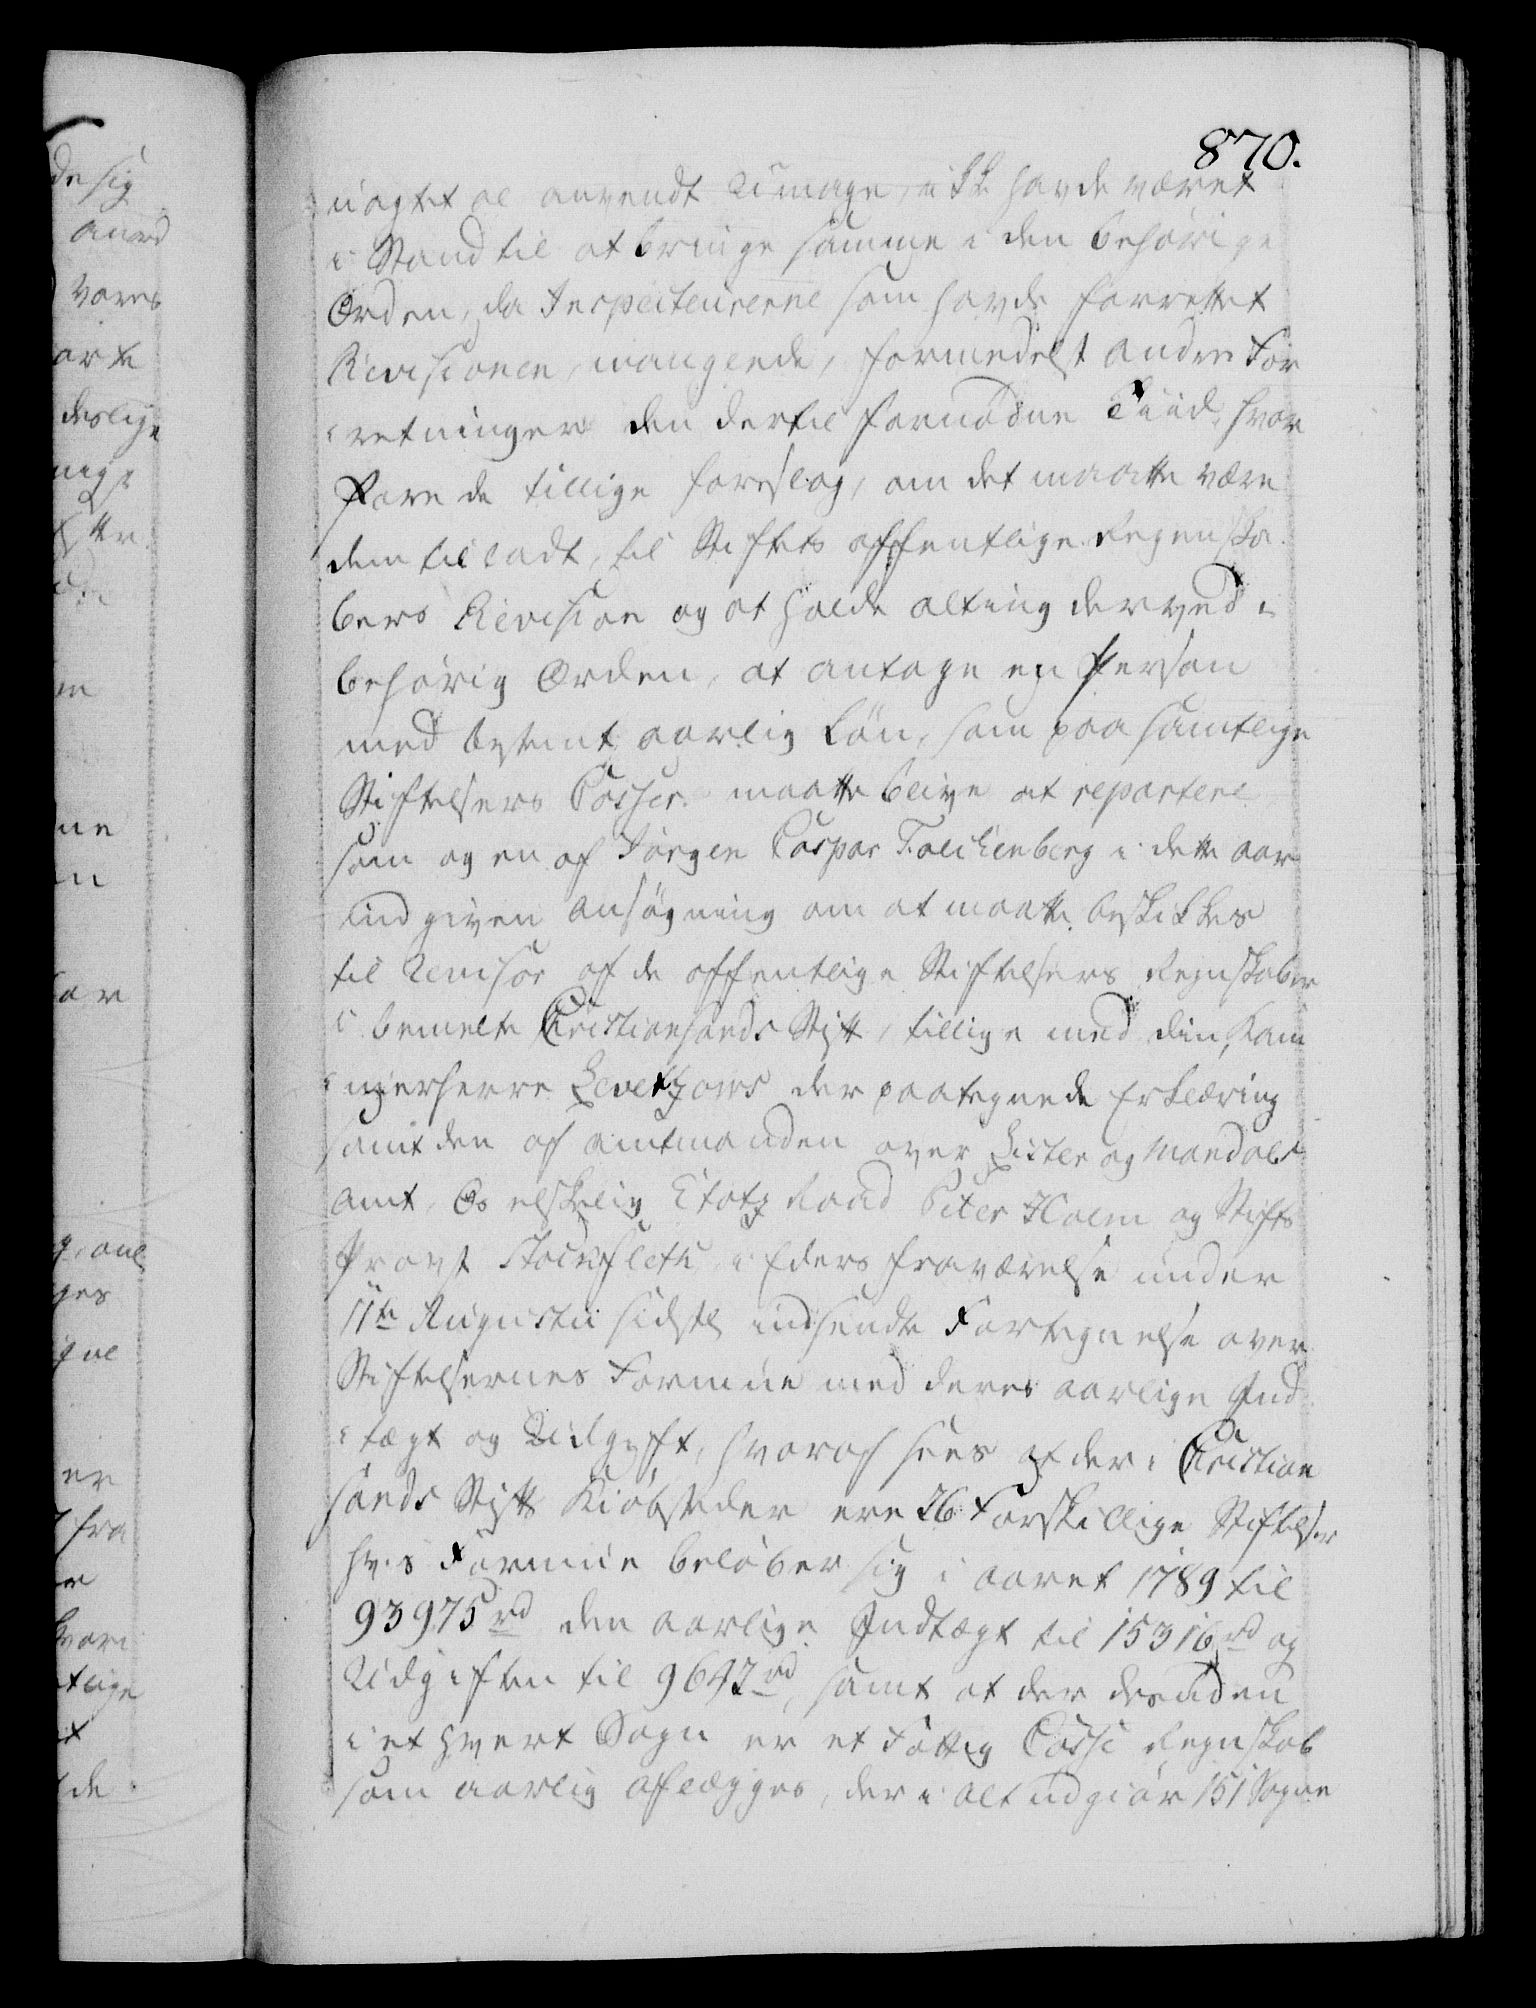 870.
uagtet al anvendt Umage, ikke havde været
i Stand til at bringe samme i den behörige
Orden, da Inspecteurerne som havde forrettet
Revisionen, manglende, formedelst andre For
retninger den dertil fornödne Tiid, hvor
fore de tillige foreslog, om det maatte være
dem tilladt, til Stiftets offentlige Regenska
bers Revision og at holde alting derved i
behörig Orden, at antage en Person
med bestemt aarlig Lön, som paa samtlige
Stiftelsers Casser maatte blive at repartere
som og en af Jörgen Caspar Falckenberg i dette aar
indgiven Ansögning om at maatte beskikkes
til Revisor af de offentlige Stiftelsers Regnskaber
i bemelte Christiansands Stift, tillige med din, Kam
merherre Levetzows der paategnede Erklæring
samt den af Amtmanden over Lister og Mandals
Amt, Os elskelig Etatz Raad Peter Holm og Stifts
Provst Stockfleth, i Eders fraværelse under
11te Augustii sidstl indsendte Fortegnelse over
Stiftelsernes Formue med deres aarlige Ind
tægt og Udgift, hvoraf sees at der i Christian
sands Stifts Kiöbstæder ere 26 Forskillige Stiftelser
hvis Formue belöber sig i aaret 1789 til
93975 rd den aarlige Indtægt til 15316 rd og
Udgiften til 9642 rd, samt at der desuden
i et hvert Sogn er et Fattig Casse Regnskab
som aarlig aflægges, der i alt udgiör 151 Sogne